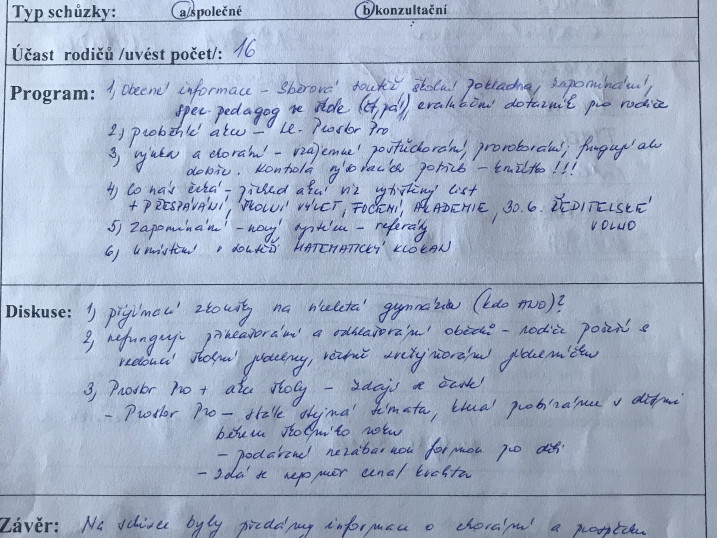 Typ schůzky: a/společné b/konzultační
Účast rodičů /uvést počet/: 16
Program: 1, Obecné informace – sběrová soutěž, školní pokladna, zapomínání,
spec. pedagog ve škole (čt, pá), evaluační dotazník pro rodiče
2, proběhlé akce – Le. Prostor Pro
3, výuka a chování – vzájemné pošťuchování, provokování, fungují ale
dobře. Kontrola rýsovacích potřeb – kružítko!!!
4, Co nás čeká – přehled akcí viz vytištěný list
+ PŘESPÁVÁNÍ, ŠKOLNÍ VÝLET, FOCENÍ, AKADEMIE, 30.6. ŘEDITELSKÉ
VOLNO
5) Zapomínání – nový systém – referáty
6, Umístění v soutěži MATEMATICKÝ KLOKAN
Diskuse: 1, přijímací zkoušky na víceletá gymnázia (kdo ANO)?
2, nefunguje přihlašování a odhlašování obědů – rodiče pořeší s
vedoucí školní jídelny, včetně zveřejňování jídelníčku
3, Prostor Pro + akce školy – zdají se časté
– Prostor Pro – stále stejná témata, která probíráme s dětmi
během školního roku
– podávání nezábavnou formou pro děti
– zdá se nepoměr cena/kvalita
Závěr: Na schůzce byly předány informace o chování a prospěchu